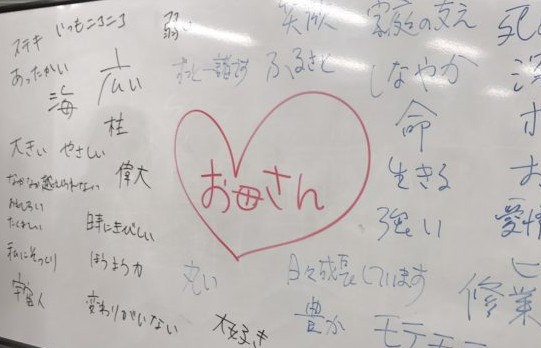 ステキ いつもニコニコ 弱い 笑顔 家庭の支え
あったかい 広い ずっと一諸 ふるさと しなやか
海
桂 命
大きい やさしい 偉大 お母さん 生きる
なかなか越えられない
おもしろい
たくましい 時にきびしい 強い
私にそっくり ほうよう力 丸い 日々成長しています
宇宙人 変わりがいない 大好き 豊か 修業